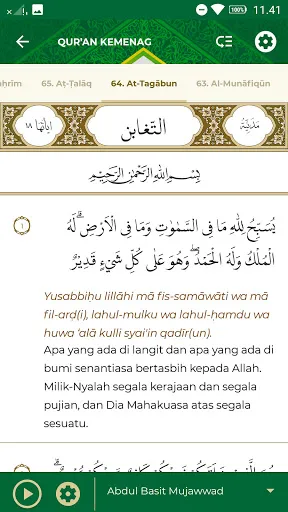 11.41
100%
QUR'AN KEMENAG
aḥrīm 65. Aṭ-Ṭalāq 64. At-Tagābun 63. Al-Munāfiqūn
مَدَنِيَّة التّغابن اياتها ١٨
بِسْمِ اللّٰهِ الرَّحْمٰنِ الرَّحِيْمِ
يُسَبِّحُ لِلّٰهِ مَا فِى السَّمٰوٰتِ وَمَا فِى الْاَرْضِۚ لَهُ
١
الْمُلْكُ وَلَهُ الْحَمْدُۖ وَهُوَ عَلٰى كُلِّ شَيْءٍ قَدِيْرٌ
Yusabbiḥu lillāhi mā fis-samāwāti wa mā
fil-arḍ(i), lahul-mulku wa lahul-ḥamdu wa
huwa ‘alā kulli syai'in qadīr(un).
Apa yang ada di langit dan apa yang ada di
bumi senantiasa bertasbih kepada Allah.
Milik-Nyalah segala kerajaan dan segala
pujian, dan Dia Mahakuasa atas segala
sesuatu.
Abdul Basit Mujawwad